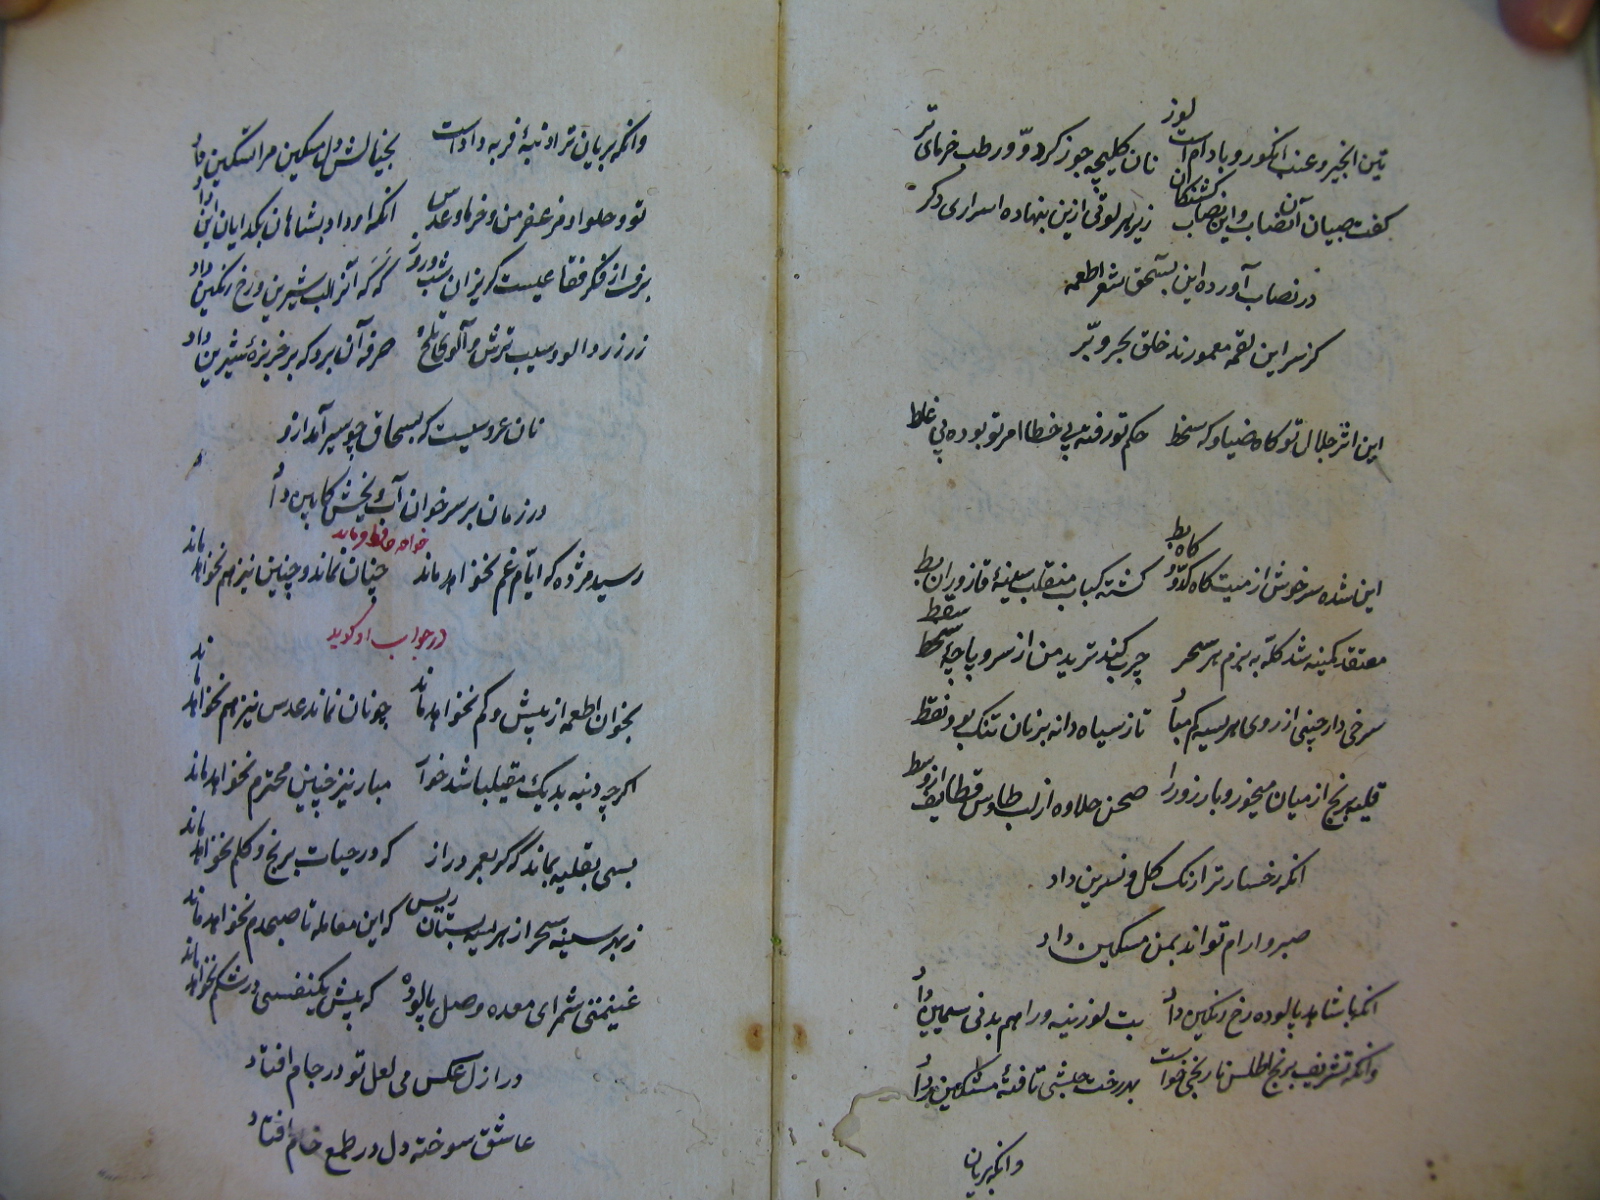 تین انجیر و عنب انگور و بادام است لوز نان کلیچه جوز کردو ور طب خرمای تر
گفت صبیان آن نصاب و این نصاب کشتکان زیر هر لوتی ازین بنهاده اسراری دگر
در نصاب آورده این بسحق شعر اطعمه
کز سر این لقمه معمورند خلق بحر و بر
این اثر جلال تو گاه ضیا و گه سخط حکم تو رفته بی خطا امر تو بوده بی غلط
این شده سرخوش از میت کاه کدو و کاه بط گشته کباب منقلب سینهٔ قاز و ران بط
معتقد کمینه شد کله به بزم هر سحر چرب کند ترید من از سر و پاچهٔ سقط
سرخی دارچینی از روی هریسه کم مباد تا ز سیاه دانه بر نان تنک بود نقط
قلیه برنج از میان میخور و بار زور را صحن حلاوه از لب طاوس قطایف از وسط
انکه رخسار ترا رنگ گل و نسرین داد
صبر و ارام تواند بمن مسکین داد
انکه با شاهد پالوده رخ رنگین داد بت لوزینه ورا هم بدنی سیمین داد
وانکه تشریف برنج اطلس نارنجی خواست بهر رخت حبشی تافتهٔ مشکین داد
وانکه بریان
وانکه بریان ترا دنبهٔ فربه دادست بخیالش دل مسکین مرا تسکین داد
تو و حلوا و مزعفر من و خرما و عدس انکه او داد بشاهان بگدایان این داد
برف از فکر فقاعیست گریزان شب و روز که که آنرا لب شیرین و رخ رنگین داد
زر زردالو و سیب ترش و آلوی تلخ صرفه آن برد که بر خربزهٔ شیرین داد
نان عروسیست که بسحاق چو سیر آمد ازو
در زمان بر سر خوان آب و یخش کابین داد
خواجه حافظ فرماید
رسید مژده که ایّام غم نخواهد ماند چنان نماند و چنین نیز هم نخواهد ماند
در جواب او گوید
بخوان اطعمه از پیش و کم نخواهد ماند چو نان نماند عدس نیز هم نخواهد ماند
اگرچه دنبه بدیک مقیلبا شد خوار مبار نیز چنین محترم نخواهد ماند
بسی بقلیه بماند گر گر بعمر دراز که در حیات برنج و کلم نخواهد ماند
ز بهر سینه سحر از هریسه بستان ریس که این معامله تا صبحدم نخواهد ماند
غنیمتی شمر ای معده وصل پالوده که پیش یکنفسی در شکم نخواهد ماند
در ازل عکس می لعل تو در جام افتاد
عاشق سوخته دل در طمع خام افتاد